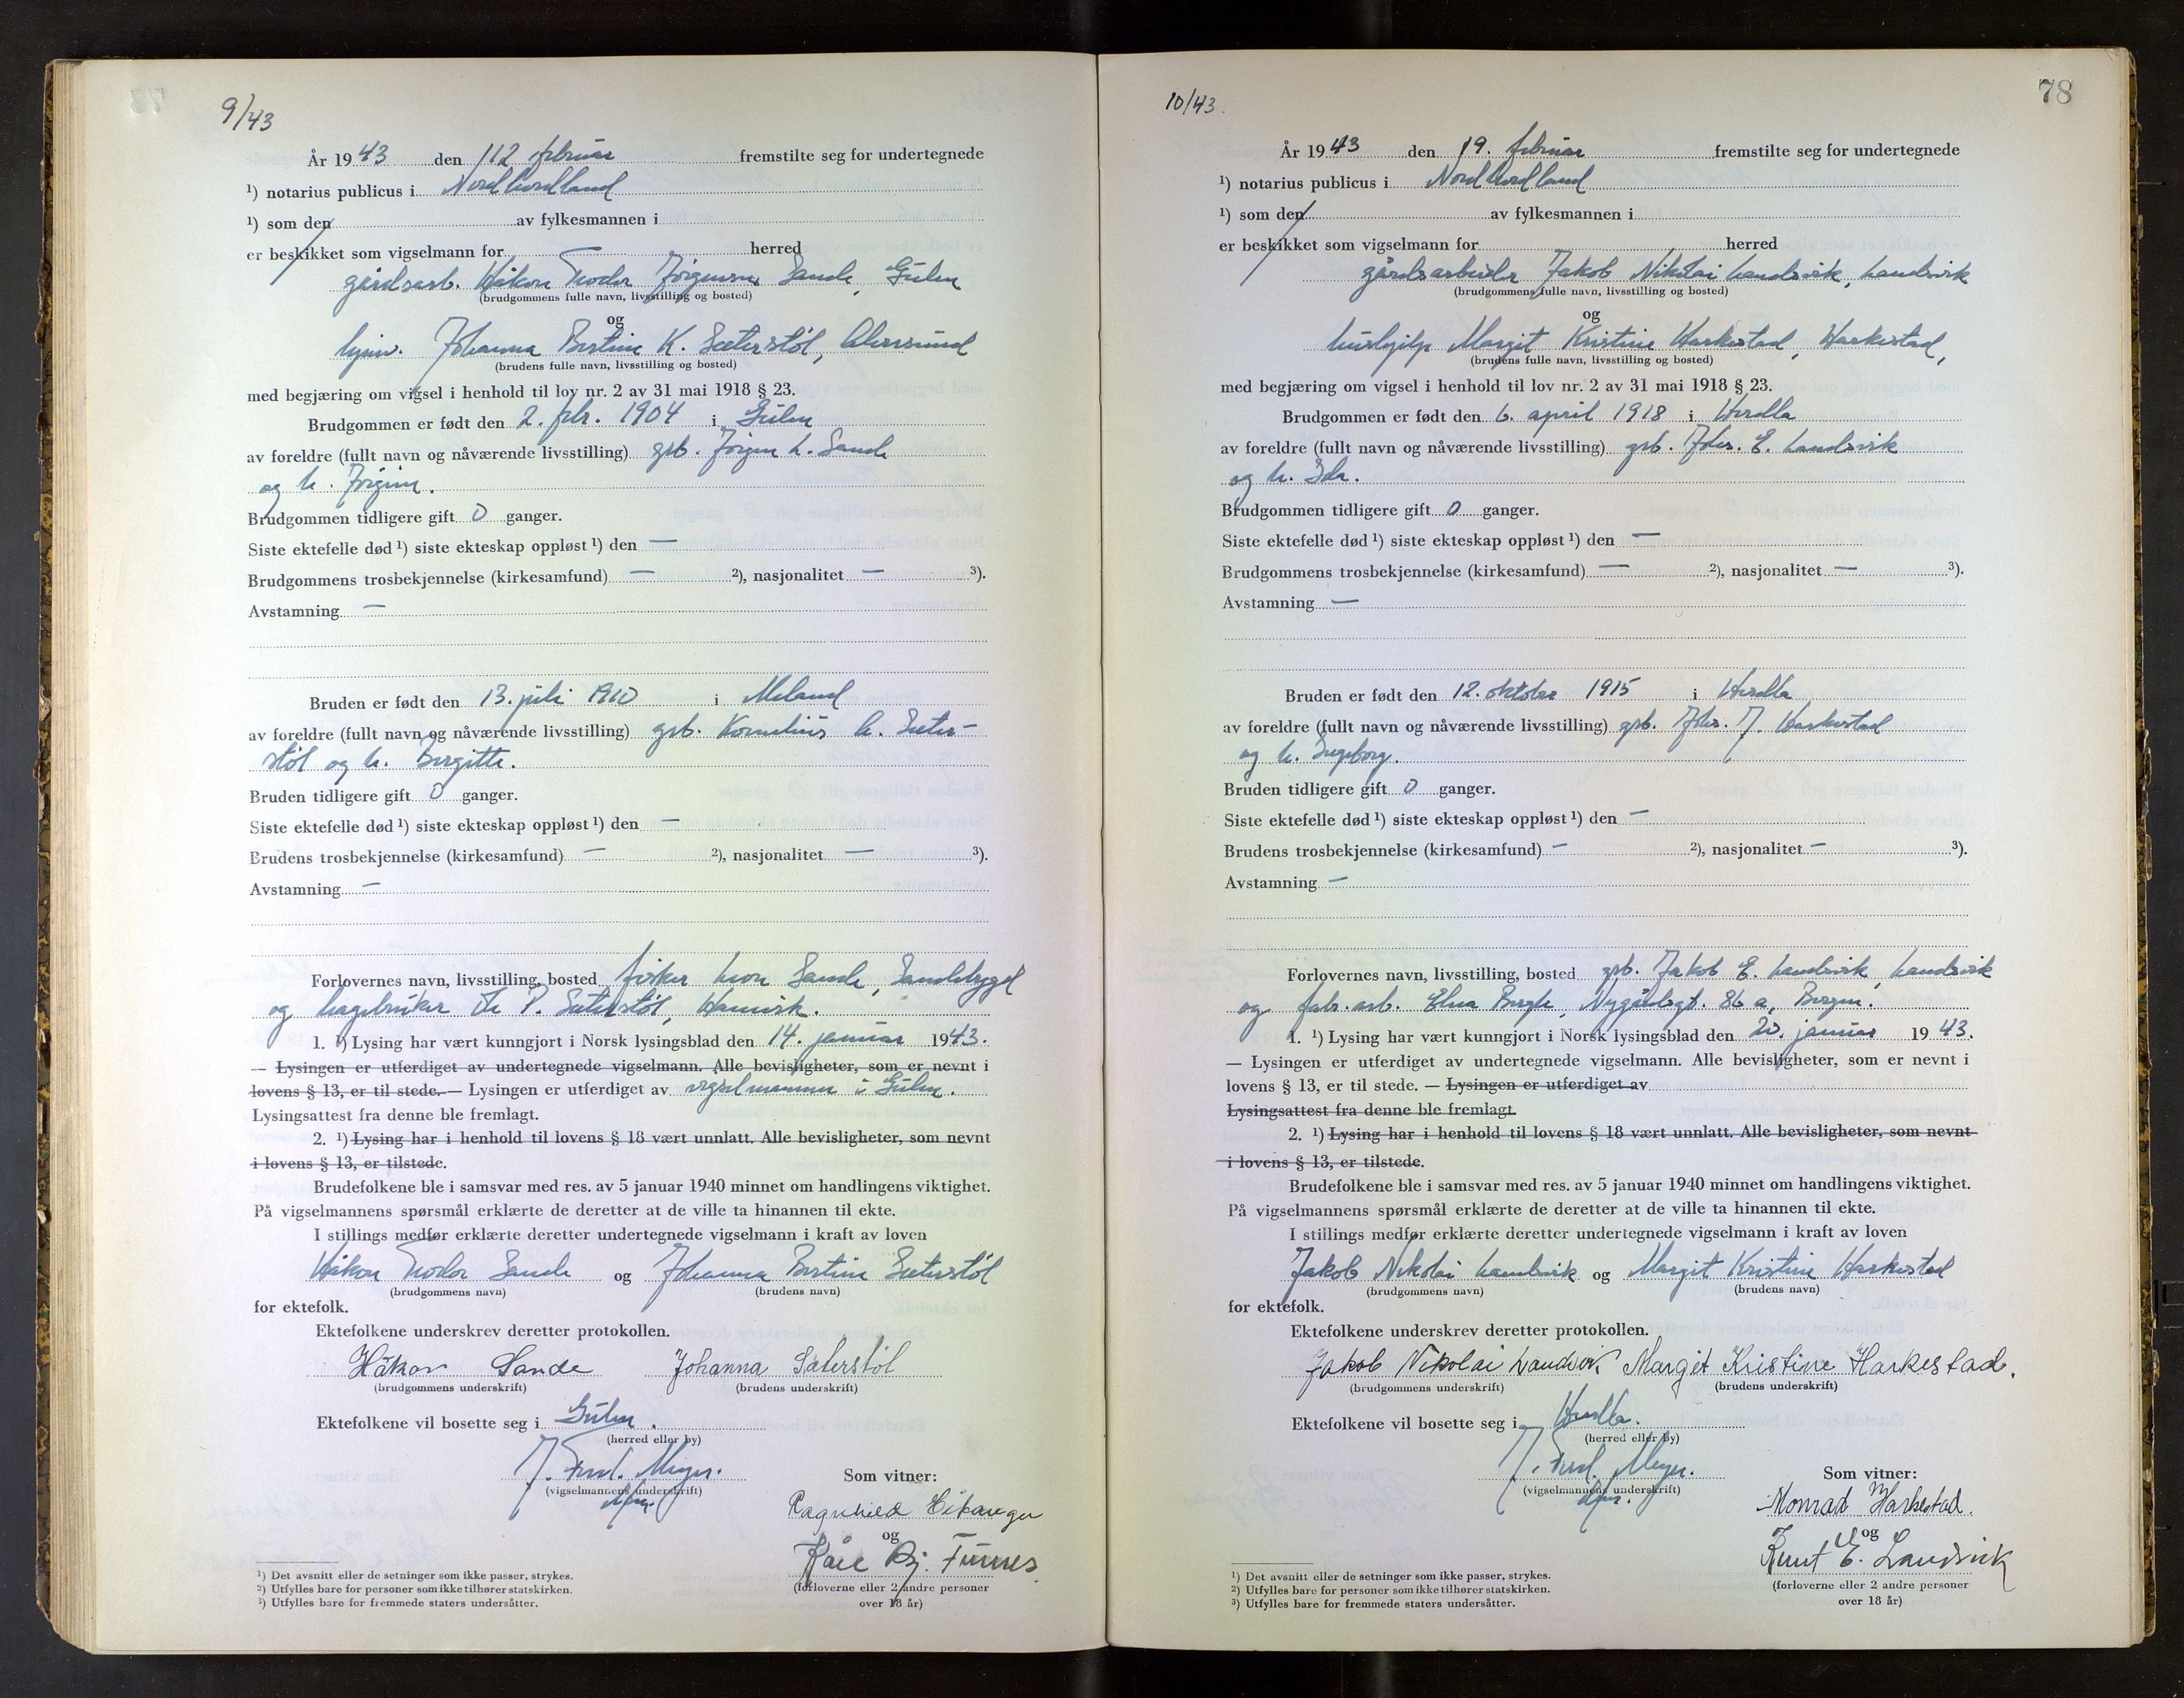 9/43
År 1943 den 12 februar fremstilte seg for undertegnede
¹) notarius publicus i Nordhordland
¹) som den av fylkesmannen i
er beskikket som vigselmann for herred
gårdsarb. Håkon Teodor Jørgensen Sande, Gulen
(brudgommens fulle navn, livsstilling og bosted)
og
hjmv. Johanna Bertine K. Sæterstøl, Alversund
(brudens fulle navn, livsstilling og bosted)
med begjæring om vigsel i henhold til lov nr. 2 av 31 mai 1918 § 23.
Brudgommen er født den 2. febr. 1904 i Gulen
av foreldre (fullt navn og nåværende livsstilling) grb. Jørgen L. Sande
og h. Jørgine.
Brudgommen tidligere gift 0 ganger.
Siste ektefelle død ¹) siste ekteskap oppløst ¹) den —
Brudgommens trosbekjennelse (kirkesamfund) — ²), nasjonalitet — ³).
Avstamning —
Bruden er født den 13. juli 1910 i Meland
av foreldre (fullt navn og nåværende livsstilling) grb. Kornelius A. Sæter-
støl og h. Bergitte.
Bruden tidligere gift 0 ganger.
Siste ektefelle død ¹) siste ekteskap oppløst ¹) den —
Brudens trosbekjennelse (kirkesamfund) — ²), nasjonalitet — ³).
Avstamning —
Forlovernes navn, livsstilling, bosted fisker Sande, Sandebygd
og hagebruker P. Sæterstøl, Hamvik.
1. ¹) Lysing har vært kunngjort i Norsk lysingsblad den 14. januar 1943.
— Lysingen er utferdiget av undertegnede vigselmann. Alle bevisligheter, som er nevnt i
lovens § 13, er til stede. — Lysingen er utferdiget av vigselmannen i Gulen.
Lysingsattest fra denne ble fremlagt.
2. ¹) Lysing har i henhold til lovens § 18 vært unnlatt. Alle bevisligheter, som nevnt
i lovens § 13, er tilstede.
Brudefolkene ble i samsvar med res. av 5 januar 1940 minnet om handlingens viktighet.
På vigselmannens spørsmål erklærte de deretter at de ville ta hinannen til ekte.
I stillings medfør erklærte deretter undertegnede vigselmann i kraft av loven
Håkon Teodor Sande og Johanna Bertine Sæterstøl
(brudgommens navn) (brudens navn)
for ektefolk.
Ektefolkene underskrev deretter protokollen.
Håkon Sande Johanna Sæterstøl
(brudgommens underskrift) (brudens underskrift)
Ektefolkene vil bosette seg i Gulen.
(herred eller by)
J. Fred. Meyer.
(vigselmannens underskrift)
Som vitner:
Ragnhild Eikanger
og
Kåre Bj. Furnes
(forloverne eller 2 andre personer
over 18 år)
¹) Det avsnitt eller de setninger som ikke passer, strykes.
²) Utfylles bare for personer som ikke tilhører statskirken.
³) Utfylles bare for fremmede staters undersåtter.
78
10/43.
År 1943 den 19. februar fremstilte seg for undertegnede
¹) notarius publicus i Nordhordland
¹) som den av fylkesmannen i
er beskikket som vigselmann for herred
gårdsarbeider Jakob Nikolai Landsvik, Landsvik
(brudgommens fulle navn, livsstilling og bosted)
og
hushjelp Margit Kristine Harkestad, Harkestad,
(brudens fulle navn, livsstilling og bosted)
med begjæring om vigsel i henhold til lov nr. 2 av 31 mai 1918 § 23.
Brudgommen er født den 6. april 1918 i Herdla
av foreldre (fullt navn og nåværende livsstilling) grb. Johs. E. Landsvik
og h. Ida.
Brudgommen tidligere gift 0 ganger.
Siste ektefelle død ¹) siste ekteskap oppløst ¹) den —
Brudgommens trosbekjennelse (kirkesamfund) — ²), nasjonalitet — ³).
Avstamning —
Bruden er født den 12. oktober 1915 i Herdla
av foreldre (fullt navn og nåværende livsstilling) grb. Johs. J. Harkestad
og h. Ingeborg.
Bruden tidligere gift 0 ganger.
Siste ektefelle død ¹) siste ekteskap oppløst ¹) den —
Brudens trosbekjennelse (kirkesamfund) — ²), nasjonalitet — ³).
Avstamning —
Forlovernes navn, livsstilling, bosted grb. Jakob E. Landsvik, Landsvik
og fabr.arb. Elna Berge, Nygårdsgt. 86 a, Bergen.
1. ¹) Lysing har vært kunngjort i Norsk lysingsblad den 20. januar 1943.
— Lysingen er utferdiget av undertegnede vigselmann. Alle bevisligheter, som er nevnt i
lovens § 13, er til stede. — Lysingen er utferdiget av
Lysingsattest fra denne ble fremlagt
2. ¹) Lysing har i henhold til lovens § 18 vært unnlatt. Alle bevisligheter, som nevnt
i lovens § 13, er tilstede.
Brudefolkene ble i samsvar med res. av 5 januar 1940 minnet om handlingens viktighet.
På vigselmannens spørsmål erklærte de deretter at de ville ta hinannen til ekte.
I stillings medfør erklærte deretter undertegnede vigselmann i kraft av loven
Jakob Nikolai Landsvik og Margit Kristine Harkestad
(brudgommens navn) (brudens navn)
for ektefolk.
Ektefolkene underskrev deretter protokollen.
Jakob Nikolai Landsvik Margit Kristine Harkestad.
(brudgommens underskrift) (brudens underskrift)
Ektefolkene vil bosette seg i Herdla.
(herred eller by)
J. Fred. Meyer.
(vigselmannens underskrift)
Som vitner:
Monrad Harkestad.
og
Knut E. Landsvik
(forloverne eller 2 andre personer
over 18 år)
¹) Det avsnitt eller de setninger som ikke passer, strykes.
²) Utfylles bare for personer som ikke tilhører statskirken.
³) Utfylles bare for fremmede staters undersåtter.